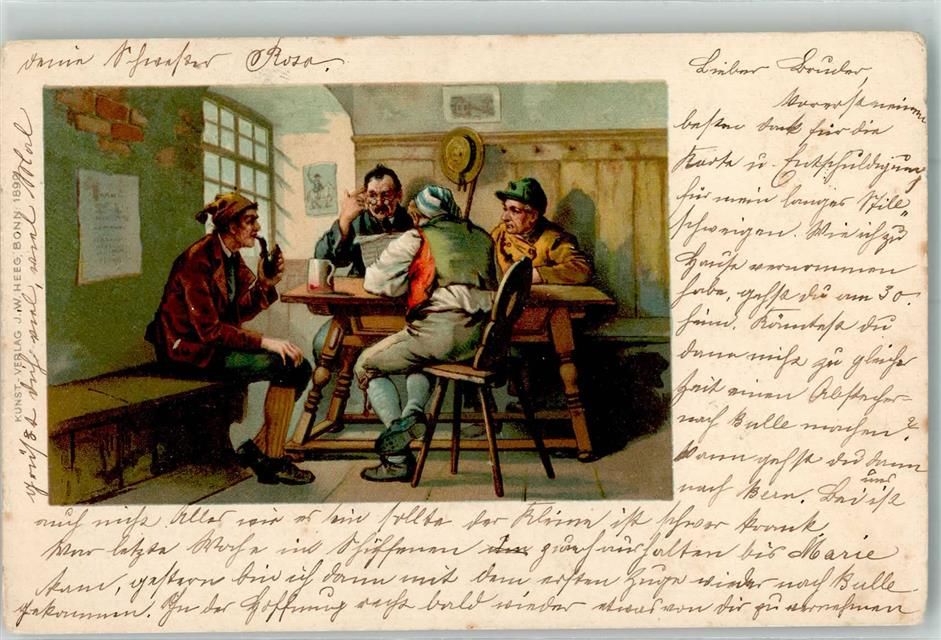 Lieber Bruder,
Vorerst meinen
besten Dank für die
Karte u. Entschuldigung
für mein langes Still
schweigen. Wie ich zu
Hause vernommen
habe, gehst du am 30.
heim. Könntest du
dann nicht zu gleicher
Zeit einen Abstecher
nach Bulle machen?
Wann gehst du dann
nach Bern. Bei uns ist
auch nicht Alles wie es sein sollte der Kleine ist schwer krank
War letzte Woche in Schiffenen zum haushalten bis Marie
kam, gestern bin ich dann mit dem ersten Zuge wieder nach Bulle
gekommen. In der Hoffnung recht bald wieder etwas von dir zu vernehmen
grüßt dich viel, viel Mal
deine Schwester Rosa.
KUNST-VERLAG J.W.HEEG, BONN 1899